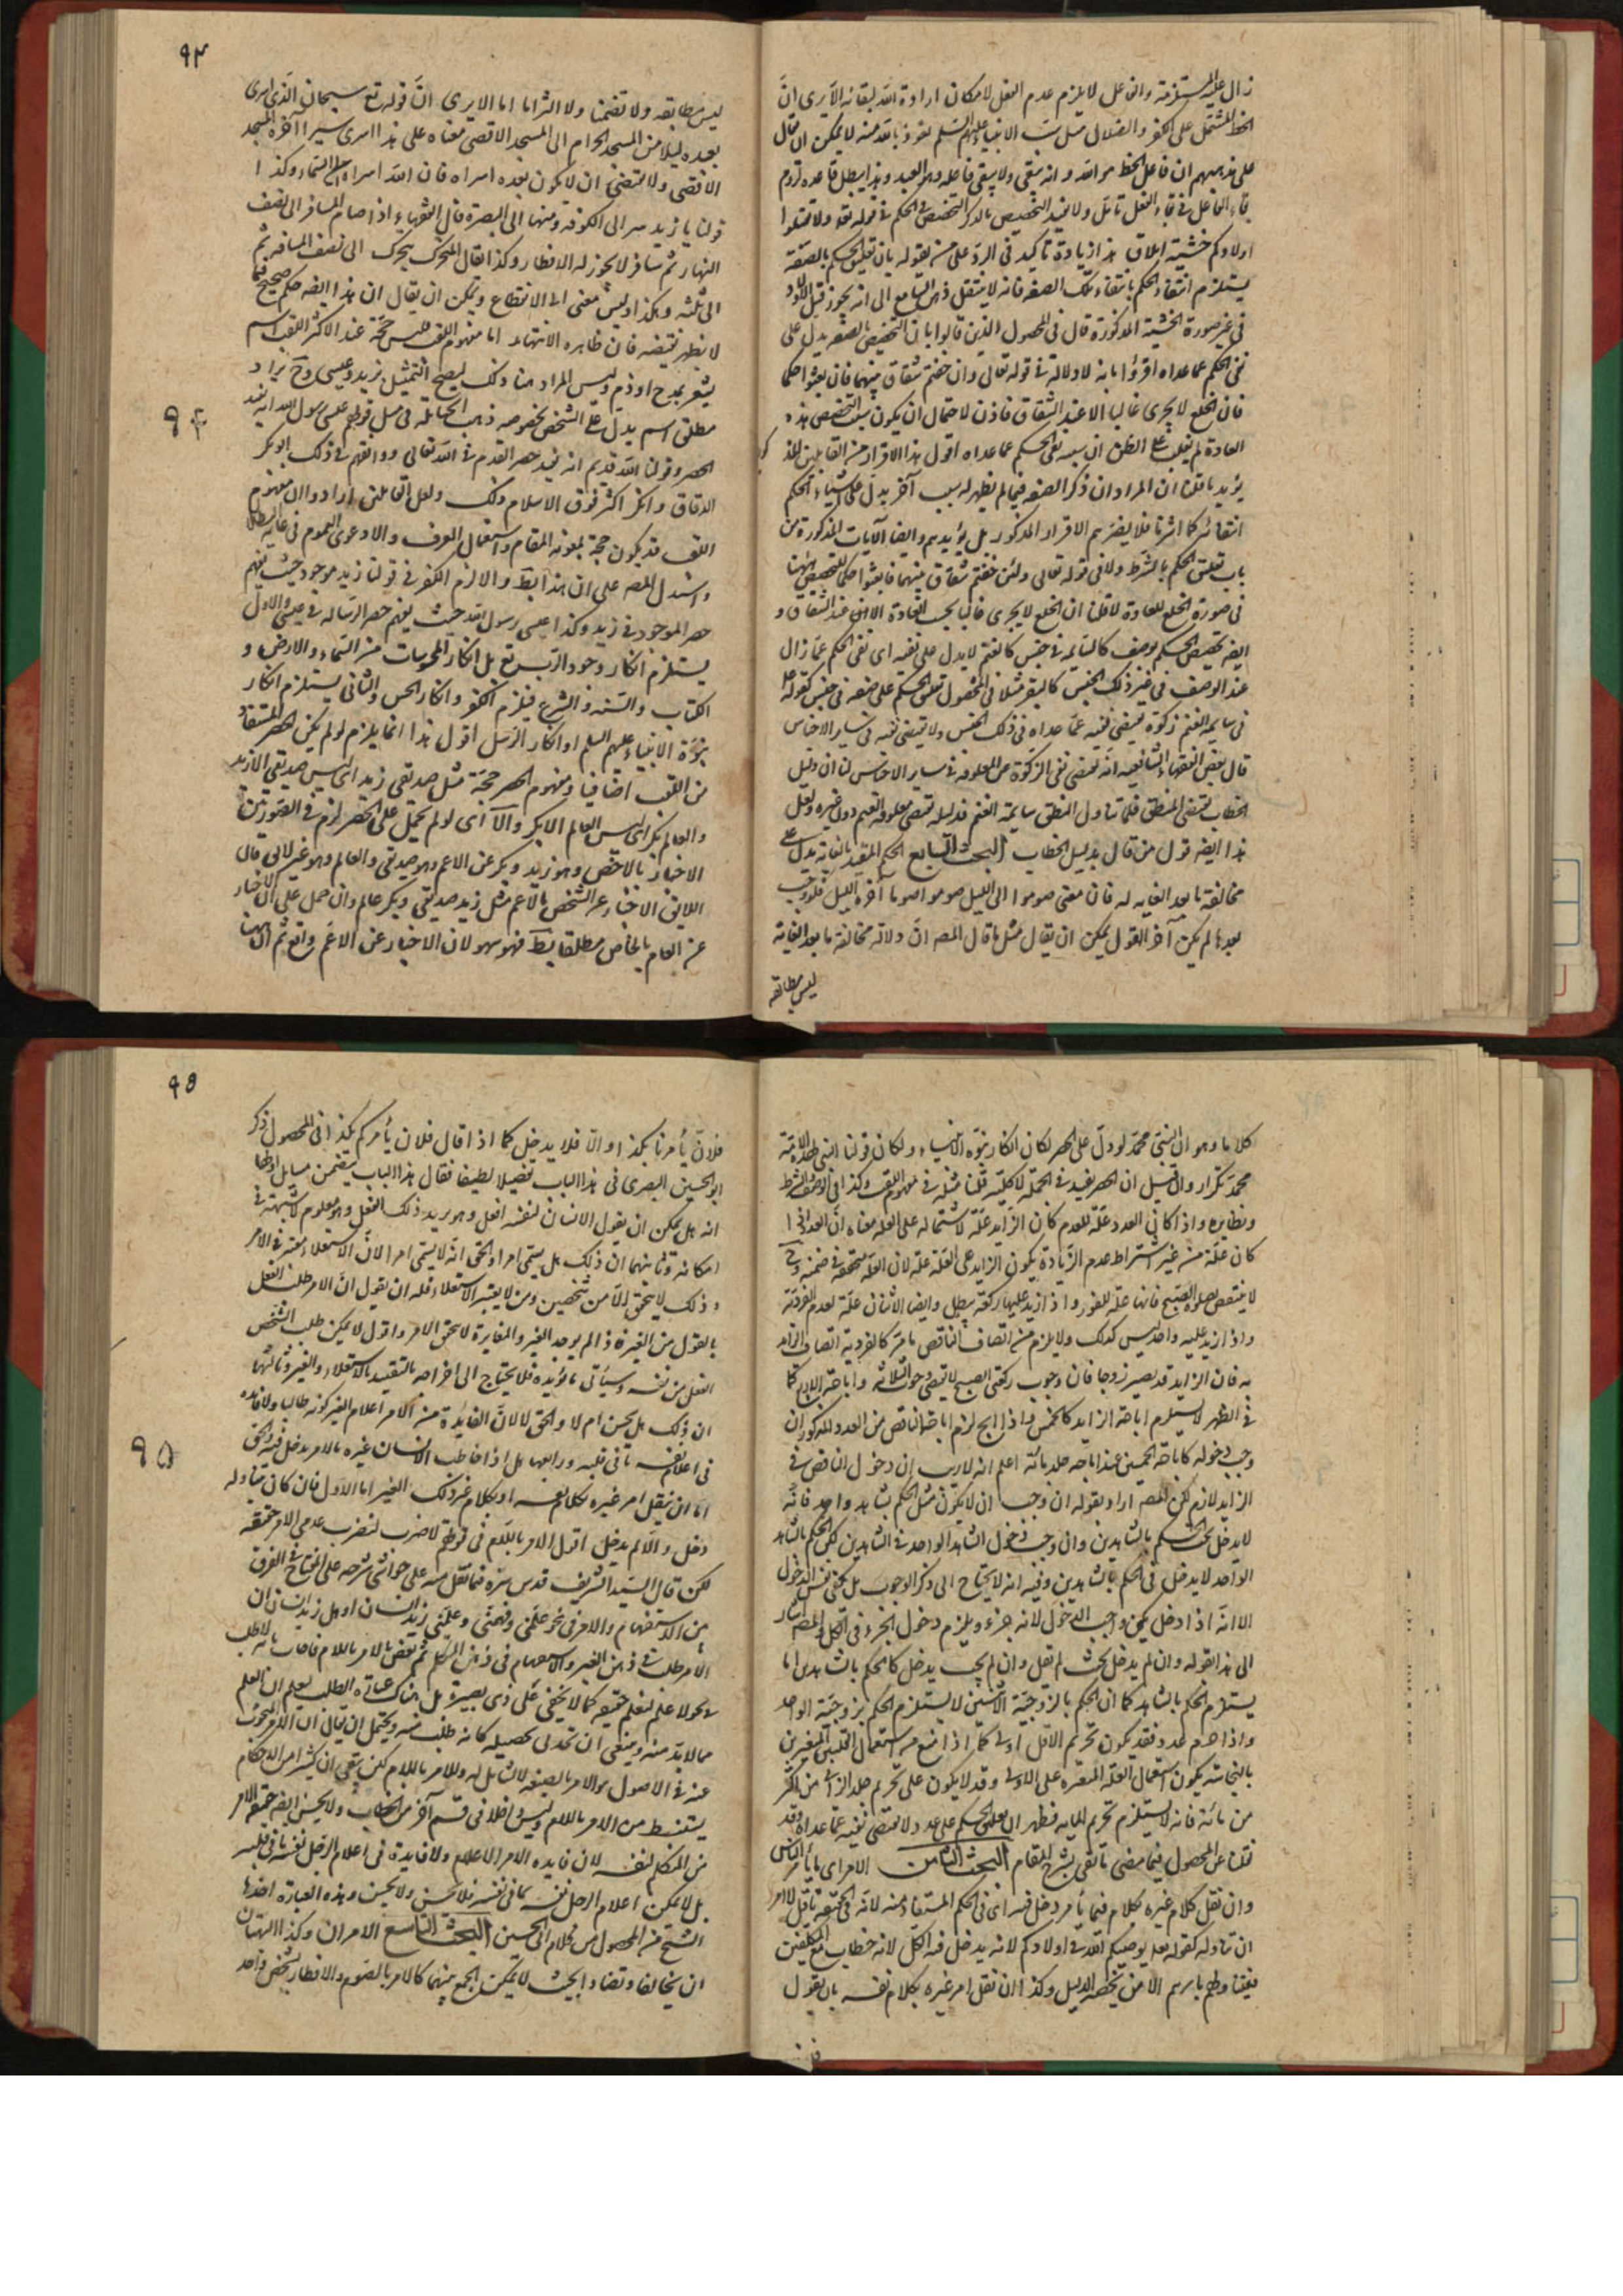 زال عليه المستلزمة والفاعل لا يلزم عدم الفعل لامكان ارادة الله لبقائه الا يرى انّ
الخط المشتمل على الكفر والضلال مثل سب الانبياء عليهم السلم نعوذ بالله منه لا يمكن ان يقال
على مذهبهم ان فاعل الخط هو الله وانه يبقى ولا يبقى فاعله وهو العبد وهذا يبطل قاعدة لزوم
بقاء الفاعل في بقاء الفعل تأمل ولا يفيد التخصيص بالذكر التخصيص في الحكم في قوله تعالى ولا تقتلوا
اولادكم خشية املاق هذا زيادة تأكيد في الرد على من يقوله بان تعليق الحكم بالصفة
يستلزم انتفاء الحكم بانتفاء تلك الصفة فانه لا ينتقل ذهن السامع الى انه يجوز قتل الاولاد
في غير صورة الخشية المذكورة قال في المحصول الذين قالوا بان التخصيص بالصفة يدل على
نفي الحكم عما عداه اقرّوا بانه لا دلالة في قوله تعالى وان خفتم شقاق بينهما فابعثوا حكما
فان الخلع لا يجرى غالبا الا عند الشقاق فاذن لاحتمال ان يكون سبب التخصيص هذه
العادة لم يغلب على الظن ان سببه نفي الحكم عما عداه اقول هذا الاقرار من القائلين
يؤيد ما قلنا ان المراد ان ذكر الصفة فيما لم يظهر له سبب آخر يدل على انتفاء الحكم
انتفائه كما اشرنا فلا يضرهم الاقرار المذكور بل يؤيدهم وايضا الآيات المذكورة من
باب تعليق الحكم بالشرط ولا في قوله تعالى ولئن خفتم شقاق بينهما فابعثوا حكما للتخصيص ههنا
في صورة الخلع للعادة لما قلنا ان الخلع لا يجرى غالبا بحسب العادة الا عند الشقاق و
ايضا تخصيص الحكم بوصف كالسائمة في جنس كالغنم لا يدل على نفيه اى نفي الحكم عما زال
عنه الوصف في غير ذلك الجنس كالبقر مثلا في المحصول تعليق الحكم على صفة في جنس كقوله
في سائمة الغنم زكوة يقتضى نفيه عما عداه في ذلك الجنس ولا يقتضى نفيه في سائر الاجناس
قال بعض الفقهاء الشافعية انه يقتضى نفي الزكوة عن المعلوفة في سائر الاجناس لنا ان دليل
الخطاب نقيض المنطق فلما تناول المنطق سائمة الغنم فدليله يقتضى معلوفة الغنم دون غيره ولعل
هذا ايضا قول من قال بدليل الخطاب البحث السابع الحكم المقيد بالغاية يدل على
مخالفة ما بعد الغاية له فان معنى صوموا الى الليل صوموا صوما آخره الليل فلو وجب
بعدها لم يكن آخر القول يمكن ان يقال مثل ما قال المصه انّ دلالة مخالفة ما بعد الغاية
ليس مطابقة
٩٤
ليس مطابقة ولا تضمنا ولا التزاما اما الا يرى انّ قوله تع سبحان الذي اسرى
بعبده ليلا من المسجد الحرام الى المسجد الاقصى معناه على هذا اسرى سيرا آخره المسجد
الاقصى ولا يقتضى ان لا يكون بعده اسراء فان الله اسراه الى السماء وكذا
قولنا يا زيد سر الى الكوفة ومنها الى البصرة قال الفقهاء اذا صام المسافر الى نصف
النهار ثم سافر لا يجوز له الافطار وكذا يقال المتحرك يتحرك الى نصف المسافة ثم
الى ثلثه وهكذا وليس معنى الى الانقطاع ويمكن ان يقال ان هذا ايضا حكم صحيح فيما
لا يظهر نقيضه فان ظاهره الانتهاء اما مفهوم اللقب فليس حجة عند الاكثر اللقب اسم
يشعر بمدح او ذم وليس المراد هنا ذلك ليصح التمثيل بزيد وعيسى وح يراد
مطلق اسم يدل على الشخص بخصوصه ذهب الحنابلة في مثل قولهم عيسى رسول الله انه يفيد
٩٤
الحصر وقولنا الله قديم انه يفيد حصر القدم في الله تعالى ووافقهم في ذلك ابو بكر
الدقاق وانكر اكثر فرق الاسلام ذلك ولعل القائلين ارادوا ان مفهوم
اللقب قد يكون حجة بمعونة المقام واستعمال العرف والا دعوى العموم في غاية البطلان
واستدل المصه على ان هذا بط والا لزم الكفر في قولنا زيد موجود حيث يفهم
حصر الموجود في زيد وكذا عيسى رسول الله حيث يفهم حصر الرسالة في عيسى والاول
يستلزم انكار وجود الرب تع بل انكار المحسوسات من السماء والارض و
الكتاب والسنة والشرع فيلزم الكفر وانكار الحس والثاني يستلزم انكار
نبوة الانبياء عليهم السلم او انكار الرسل اقول هذا انما يلزم لو لم يكن الحصر المستفاد
من اللقب اضافيا ومفهوم الحصر حجة مثل صديقي زيد اى ليس صديقي الا زيد
والعالم بكر اى ليس العالم الا بكر والا اى لو لم يحمل على الحصر لزم في الصورتين
الاخبار بالاخص وهو زيد وبكر عن الاعم وهو صديقي والعالم وهو غير لائق قال
اللائق الاخبار عن الشخص بالاعم مثل زيد صديقي وبكر عالم وان حمل على ان الاخبار
عن العام بالخاص مطلقا بط فهو سهو لان الاخبار عن الاعم واقع ثم ان ههنا
كلاما وهو ان النبي محمد لو دل على الحصر لكان انكار نبوة الانبياء ولكان قولنا النبي لهذه الامة
محمد تكرار وان قيل ان الحصر يفيد في الجملة لا كلية قلنا مثله في مفهوم اللقب وكذا في الوصف والشرط
ونظايره واذا كان العدد علة للعدم كان الزايد علة لاشتماله على العلة معناه ان العدد اذا
كان علة من غير اشتراط عدم الزيادة يكون الزايد على العلة علة لان العلة متحققة في ضمنه وح
لا ينتقض بصلوة الصبح فانها علة للفوز واذا زيد عليها ركعة يبطل وايضا الاثنان علة لعدم الفردية
واذا زيد عليه واحد ليس كذلك ولا يلزم من اتصاف الناقص بامر كالفردية اتصاف الزايد
به فان الزايد قد يصير زوجا فان وجوب ركعتي الصبح لا يقتضى وجوب الثلاثة واباحة الاربع كما
في الظهر لا يستلزم اباحة الزايد كالخمس فاذا ابيح لزم اباحة الناقص من العدد المذكور ان
وجب دخوله كاباحة الخمسين عند اباحة جلد مائة اعلم انه لا ريب ان دخول الناقص في
الزايد لازم لكن المصه اراد بقوله ان وجب ان لا يكون مثل الحكم بشاهد واحد فانه
لا يدخل تحت الحكم بالشاهدين وان وجب دخول الشاهد الواحد في الشاهدين لكن الحكم بالشاهد
الواحد لا يدخل في الحكم بالشاهدين وفيه انه لا يحتاج الى ذكر الوجوب بل يكفي نفس الدخول
الا انه اذا دخل يكون واجب الدخول لانه جزء ويلزم دخول الجزء في الكل والمصه اشار
الى هذا بقوله وان لم يدخل تحت لم نقل وان لم يجب يدخل كالحكم بالشاهدين اما
يستلزم الحكم بالشاهد كما ان الحكم بالزوجية الاثنين لا يستلزم الحكم بزوجية الواحد
واذا حرم عدد فقد يكون تحريم الاقل اولى كما اذا منع من استعمال القلتين المتغيرين
بالنجاسة يكون استعمال القلة المتغيرة على الاولى وقد لا يكون على تحريم جلد الزاني من اكثر
من مائة فانه لا يستلزم تحريم المائة فظهر ان تعليق الحكم على عدد لا يقتضى نفيه عما عداه وقد
نقلنا عن المحصول فيما مضى ما يفي بشرح المقام البحث الثامن الآمر اى ما يأمر الناس
وان نقل كلام غيره بكلام فيما يأمر دخل فيه اى في الحكم المستفاد منه لانه في الحقيقة ناقل لا آمر
ان تناوله كقوله تعالى يوصيكم الله في اولادكم لانه يدخل فيه الكل لانه خطاب مع المكلفين
فيتناولهم باسرهم الا من يخصه الدليل وكذا ان نقل امر غيره بكلام نفسه بان يقول
٩٥
فلان يأمرنا بكذا والا فلا يدخل كما اذا قال فلان يأمركم بكذا في المحصول ذكر
ابو الحسين البصرى في هذا الباب تفصيلا لطيفا فقال هذا الباب يتضمن مسايل اولها
انه هل يمكن ان يقول الانسان لنفسه افعل وهو يريد ذلك الفعل وهو معلوم لا شبهة في
امكانه وثانيهما ان ذلك هل يسمى امرا والحق انه لا يسمى امرا لان الاستعلاء معتبر في الامر
وذلك لا يتحقق الا من شخصين ومن لا يعتبر الاستعلاء فله ان يقول ان الامر طلب الفعل
بالقول من الغير فاذا لم يوجد الغير والمغايرة لا يتحقق الامر واقول لا يمكن طلب الشخص
الفعل من نفسه وسيأتي ما يؤيده فلا يحتاج الى اخراجه بالتقييد بالاستعلاء والغير وثالثها
ان ذلك هل يحسن ام لا والحق لا لان الفايدة من الامر اعلام الغير كونه طالبا ولا فائدة
في اعلام نفسه ما في قلبه ورابعها هل اذا خاطب الانسان غيره بالامر يدخل فيه والحق
٩٥
اما ان ينقل امر غيره بكلام نفسه او بكلام غير ذلك الغير اما الاول فان كان يتناوله
دخل والا لم يدخل اقول الامر باللام في قولهم لاضرب لنضرب عدمي الامر حقيقة
لكن قال السيد الشريف قدس سره فيما نقل منه على حواشى شرحه على المفتاح في الفرق
بين الاستفهام والامر في نحو علمني وفهمني وعلمني زيد انسان او هل زيد انسان ان
الامر طلب في ذهن الغير والاستفهام في ذهن المتكلم ثم نقض بالامر باللام فاجاب بانه لا طلب
في نحو لاعلم لنعلم حقيقة كما لا يخفى على ذي بصيرة بل هناك عناية الطلب ليعلم ان العلم
مما لا بد منه وينبغي ان نجد لى تحصيله كانه طلب منه ويحتمل ان يقال ان الامر المبحوث
عنه في الاصول هو الامر بالصيغة لا الشامل له وللامر باللام لكن يبقى ان كثيرا من الاحكام
يستنبط من الامر باللام وليس داخلا في قسم آخر من الخطاب ولا يحسن ايضا حقيقة الامر
من المتكلم لنفسه لان فايدة الامر الاعلام ولا فايدة في اعلام الرجل نفسه ما في قلبه
بل لا يمكن اعلام الرجل نفسه بما في نفسه فلا يحسن ولا يحسن وهذه العبارة اخذها
الشيخ من المحصول من كلام ابى الحسين البحث التاسع الامران وكذا النهيان
ان تخالفا وتضادا بحيث لا يمكن الجمع بينهما كالامر بالصوم والافطار لشخص واحد